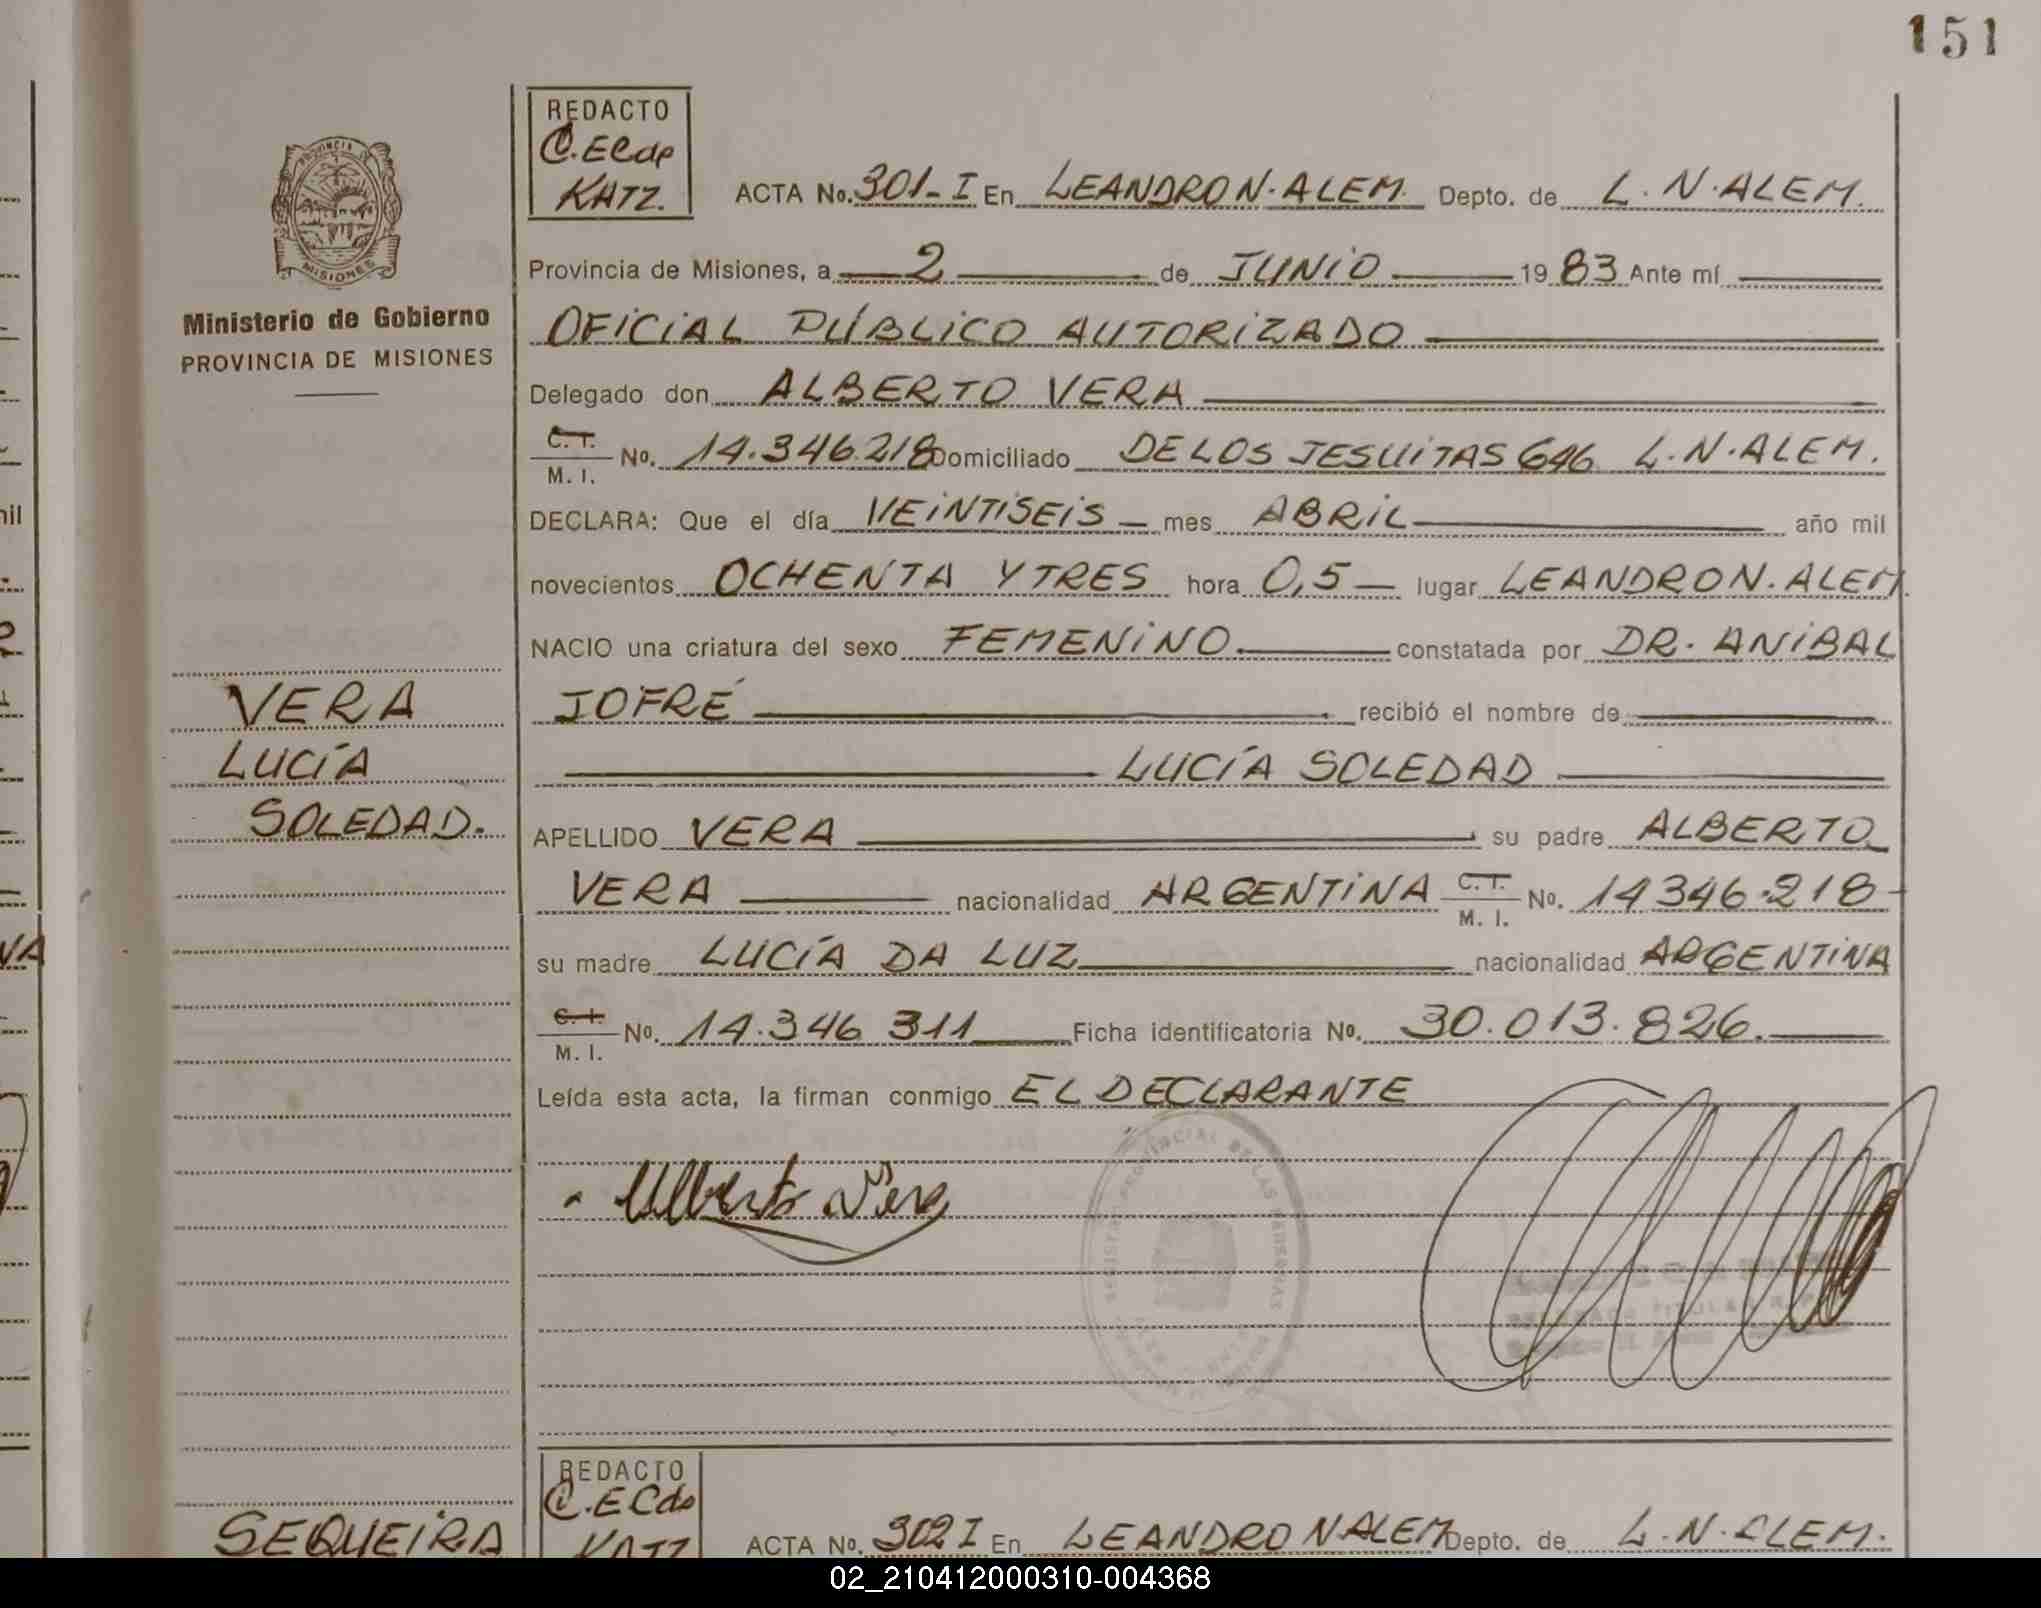 151
REDACTO
C. ECdo
KATZ.
ACTA No. 301-I En LEANDRO N. ALEM. Depto. de L. N. ALEM.
PROVINCIA DE
MISIONES
Ministerio de Gobierno
PROVINCIA DE MISIONES
Provincia de Misiones, a 2 de JUNIO 1983 Ante mí
OFICIAL PÚBLICO AUTORIZADO
Delegado don ALBERTO VERA
C. I.
M. I. No. 14.346.218 Domiciliado DE LOS JESUITAS 646 L. N. ALEM.
DECLARA: Que el día VEINTISEIS mes ABRIL año mil
novecientos OCHENTA Y TRES hora 0,5 lugar LEANDRO N. ALEM.
NACIO una criatura del sexo FEMENINO constatada por DR. ANIBAL
JOFRÉ recibió el nombre de
LUCÍA SOLEDAD
APELLIDO VERA su padre ALBERTO
VERA nacionalidad ARGENTINA C. I. M. I. No. 14346.218
su madre LUCÍA DA LUZ nacionalidad ARGENTINA
C. I.
M. I. No. 14.346 311 Ficha identificatoria No. 30.013.826.
Leída esta acta, la firman conmigo EL DECLARANTE
Alberto Vera
VERA
LUCÍA
SOLEDAD.
REDACTO
C. ECdo
KATZ
SEQUEIRA
ACTA No. 302 I En LEANDRO N ALEM Depto. de L. N. ALEM.
02_210412000310-004368